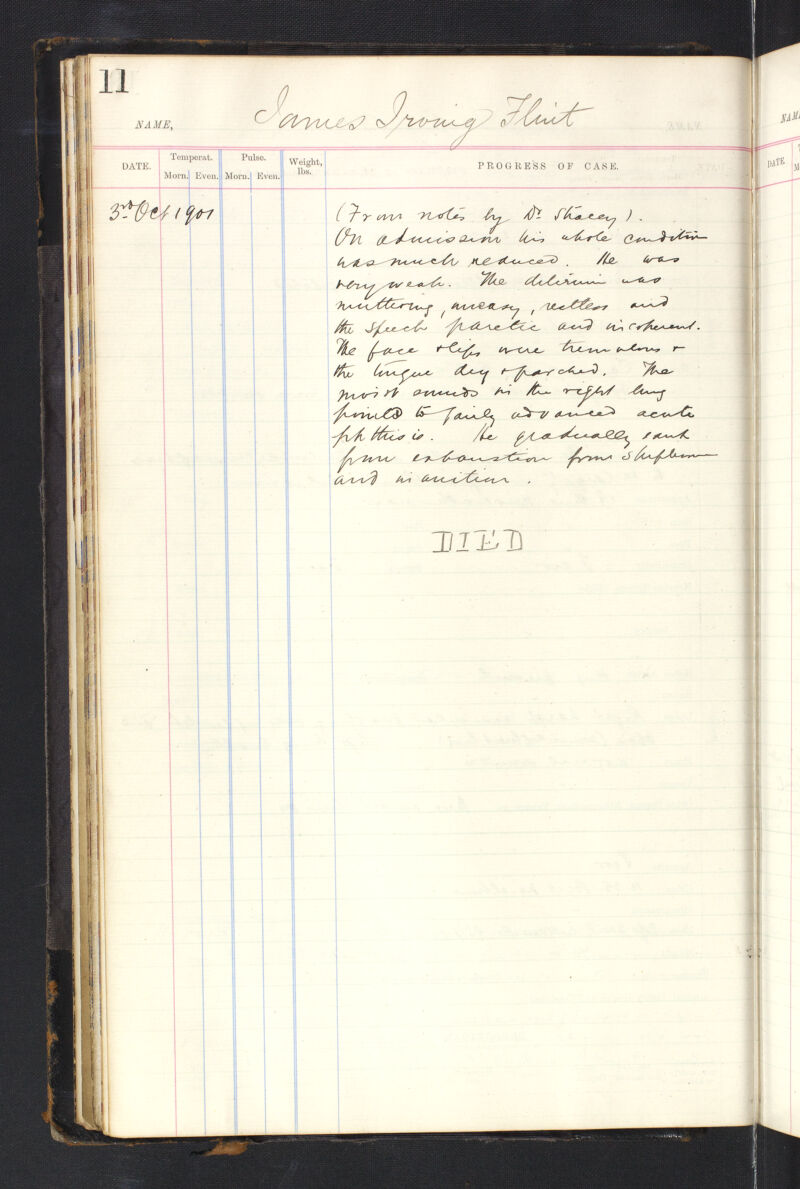 11
NAME, James Irving Flint
DATE. Temperat. Pulse. Weight, lbs. PROGRESS OF CASE.
Morn. Even. Morn. Even.
3rd Oct 1901 (From notes by Dr Stacey).
On admission his whole condition
was much reduced. He was
very weak. The delirium was
muttering, uneasy, restless and
the speech paretic and incoherent.
The face & lips were tremulous &
the tongue dry & parched. The
moist sounds in the right lung
pointed to fairly advanced acute
phthisis. He gradually sank
from exhaustion from
and inanition.
DIED
NAM
DATE